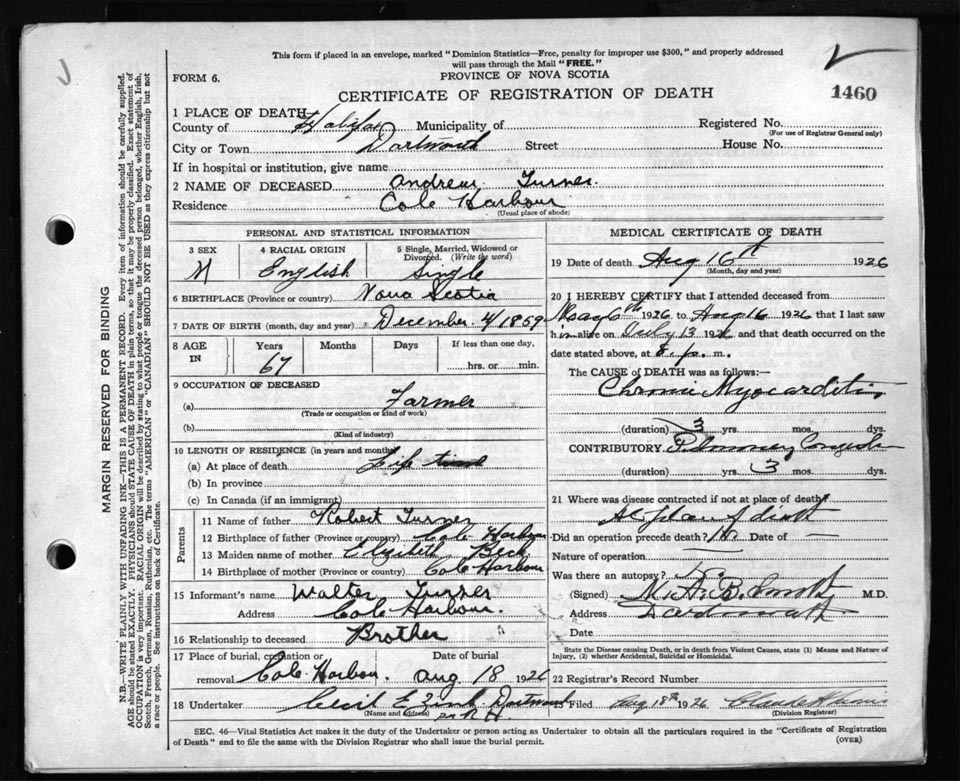 This form if placed in an envelope, marked "Dominion Statistics—Free, penalty for improper use $300," and properly addressed
will pass through the Mail "FREE."
FORM 6.
PROVINCE OF NOVA SCOTIA
CERTIFICATE OF REGISTRATION OF DEATH
1460
1 PLACE OF DEATH
County of Halifax Municipality of
Registered No.
(For use of Registrar General only)
City or Town Dartmouth Street House No.
If in hospital or institution, give name
2 NAME OF DECEASED Andrew Turner.
Residence Cole Harbour
(Usual place of abode)
PERSONAL AND STATISTICAL INFORMATION
3 SEX M
4 RACIAL ORIGIN English
5 Single, Married, Widowed or
Divorced. (Write the word)
Single
6 BIRTHPLACE (Province or country) Nova Scotia
7 DATE OF BIRTH (month, day and year) December 4/1859
8 AGE IN Years 67 Months Days If less than one day,
hrs. or min.
9 OCCUPATION OF DECEASED
(a) Farmer
(Trade or occupation or kind of work)
(b)
(Kind of industry)
10 LENGTH OF RESIDENCE (in years and months)
(a) At place of death Life time
(b) In province
(c) In Canada (if an immigrant)
Parents
11 Name of father Robert Turner
12 Birthplace of father (Province or country) Cole Harbour
13 Maiden name of mother Elizabeth Beck
14 Birthplace of mother (Province or country) Cole Harbour
15 Informant's name Walter Turner
Address Cole Harbour.
16 Relationship to deceased Brother
17 Place of burial, cremation or Date of burial
removal Cole Harbour. Aug 18 1926
18 Undertaker Cecil E. Zink Dartmouth
(Name and address)
per R H.
MEDICAL CERTIFICATE OF DEATH
19 Date of death Aug 16th 1926
(Month, day and year)
20 I HEREBY CERTIFY that I attended deceased from
May 6th 1926 to Aug 16 1926 that I last saw
him alive on July 13 1926 and that death occurred on
date stated above, at 8 p. m.
The CAUSE of DEATH was as follows:—
Chronic Myocarditis
(duration) 3 yrs. mos. dys.
CONTRIBUTORY Pulmonary Congestion
(duration) yrs. 3 mos. dys.
21 Where was disease contracted if not at place of death?
At place of death
Did an operation precede death? No Date of —
Nature of operation —
Was there an autopsy?
(Signed) M. A. B. Smith M.D.
Address Dartmouth
Date
State the Disease causing Death, or in death from Violent Causes, state (1) Means and Nature of
Injury, (2) whether Accidental, Suicidal or Homicidal.
22 Registrar's Record Number
Filed Aug 18th 1926
(Division Registrar)
SEC. 46—Vital Statistics Act makes it the duty of the Undertaker or person acting as Undertaker to obtain all the particulars required in the "Certificate of Registration
of Death" and to file the same with the Division Registrar who shall issue the burial permit.
(OVER)
MARGIN RESERVED FOR BINDING
N.B.—WRITE PLAINLY WITH UNFADING INK—THIS IS A PERMANENT RECORD. Every item of information should be carefully supplied.
AGE should be stated EXACTLY. PHYSICIANS should STATE CAUSE OF DEATH in plain terms, so that it may be properly classified. Exact statement of
OCCUPATION is very important. RACIAL ORIGIN will be described by stating to what people or tongue the deceased person belonged, whether English, Irish,
Scotch, French, German, Russian, Ruthenian, etc. The terms "AMERICAN" or "CANADIAN" SHOULD NOT BE USED as they express citizenship but not
a race or people. See instructions on back of Certificate.